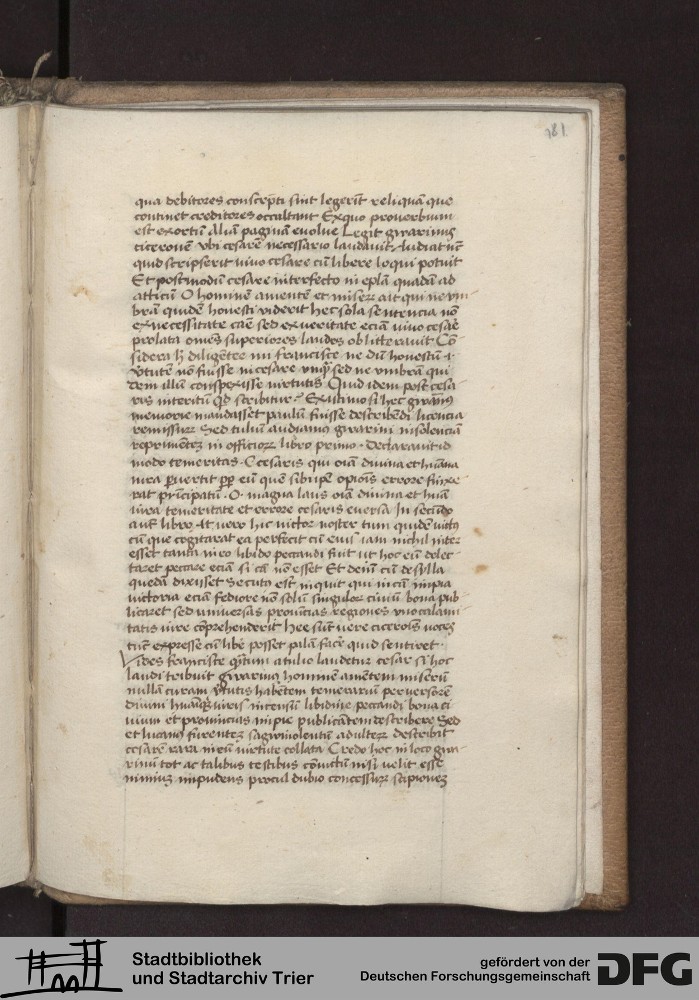 181
qua debitores conscrīpti sint legerīt reliquā que
continet creditores occultant Ex quo proverbium
est exortū Aliā paginā evolue Legit gwarinus
ciceronē vbi cesarē necessario laudavit Audiat nūc
quid scripserit vivo cesare cū libere loqui potuit
Et postmodū cesare interfecto in eplā quadā ad
atticū O hominē amentē et miserū ait qui ne vm
brā quidē honesti viderit hec sola sententia nō
ex necessitate sed ex veritate eciā vivo cesāe
prolata omēs superiores laudes oblitteravit Cō
sidera diligēter mi francisce ne dū honestū
vtutē nō fuisse in cesare vnq̄ sed ne vmbrā qui
dem illū conspexisse virtutis Quid idem post cesa
ris interitū scribitur Existimo si hec gwarinus
memorie mandasset paulū fuisse describēdi licencia
remissur Sed tuliū audiamus gwarini insolenciā
reprimētez in officiorz libro primo Declaravit id
modo temeritas C cesaris qui oīa divina et hūana
iura pervertit eū quē sibi ipē opiois errore finxe
rat prīncipatū O magna laus oīa divina et huā
iura temeritate et errore cesaris eversa In secūdo
libro At vero hic victor noster tum quidē victus
cū que cogitarat ea perfecit cū eius iam nichil inter
esset tanta in eo libido peccandi fuit ut hoc eū delec
taret peccare eciā si cā non esset Et deīn cū de sylla
quedā dixisset Secutus est inquit qui in cā impia
victoria eciā fediore nō solū singulor civiū bona pub
licaret sed universas provīcias regiones vno calami
tatis iure cōprehenderit Hee sūt vere ciceronis voces
tūc expresse cū libe posset palā facē quid sentiret
Vides francisce q̄tum a tulio laudetur cesar si hoc
laudi tribuit gwarinus hominē amētem miserū
nullā curam vtutis habētem temerariū perversorē
divini iuris incensū libidine peccandi bona ci
vium et provincias impie publicātem describere Sed
et lucanus furentez adulterz describit
cesarē rara in eū virtute collata Credo hoc in loco gwa
rinū tot ac talibus testibus cōvictū nisi velit esse
nimius impudens procul dubio concessur scipionez
Stadtbibliothek
und Stadtarchiv Trier
gefördert von der
Deutschen Forschungsgemeinschaft
DFG